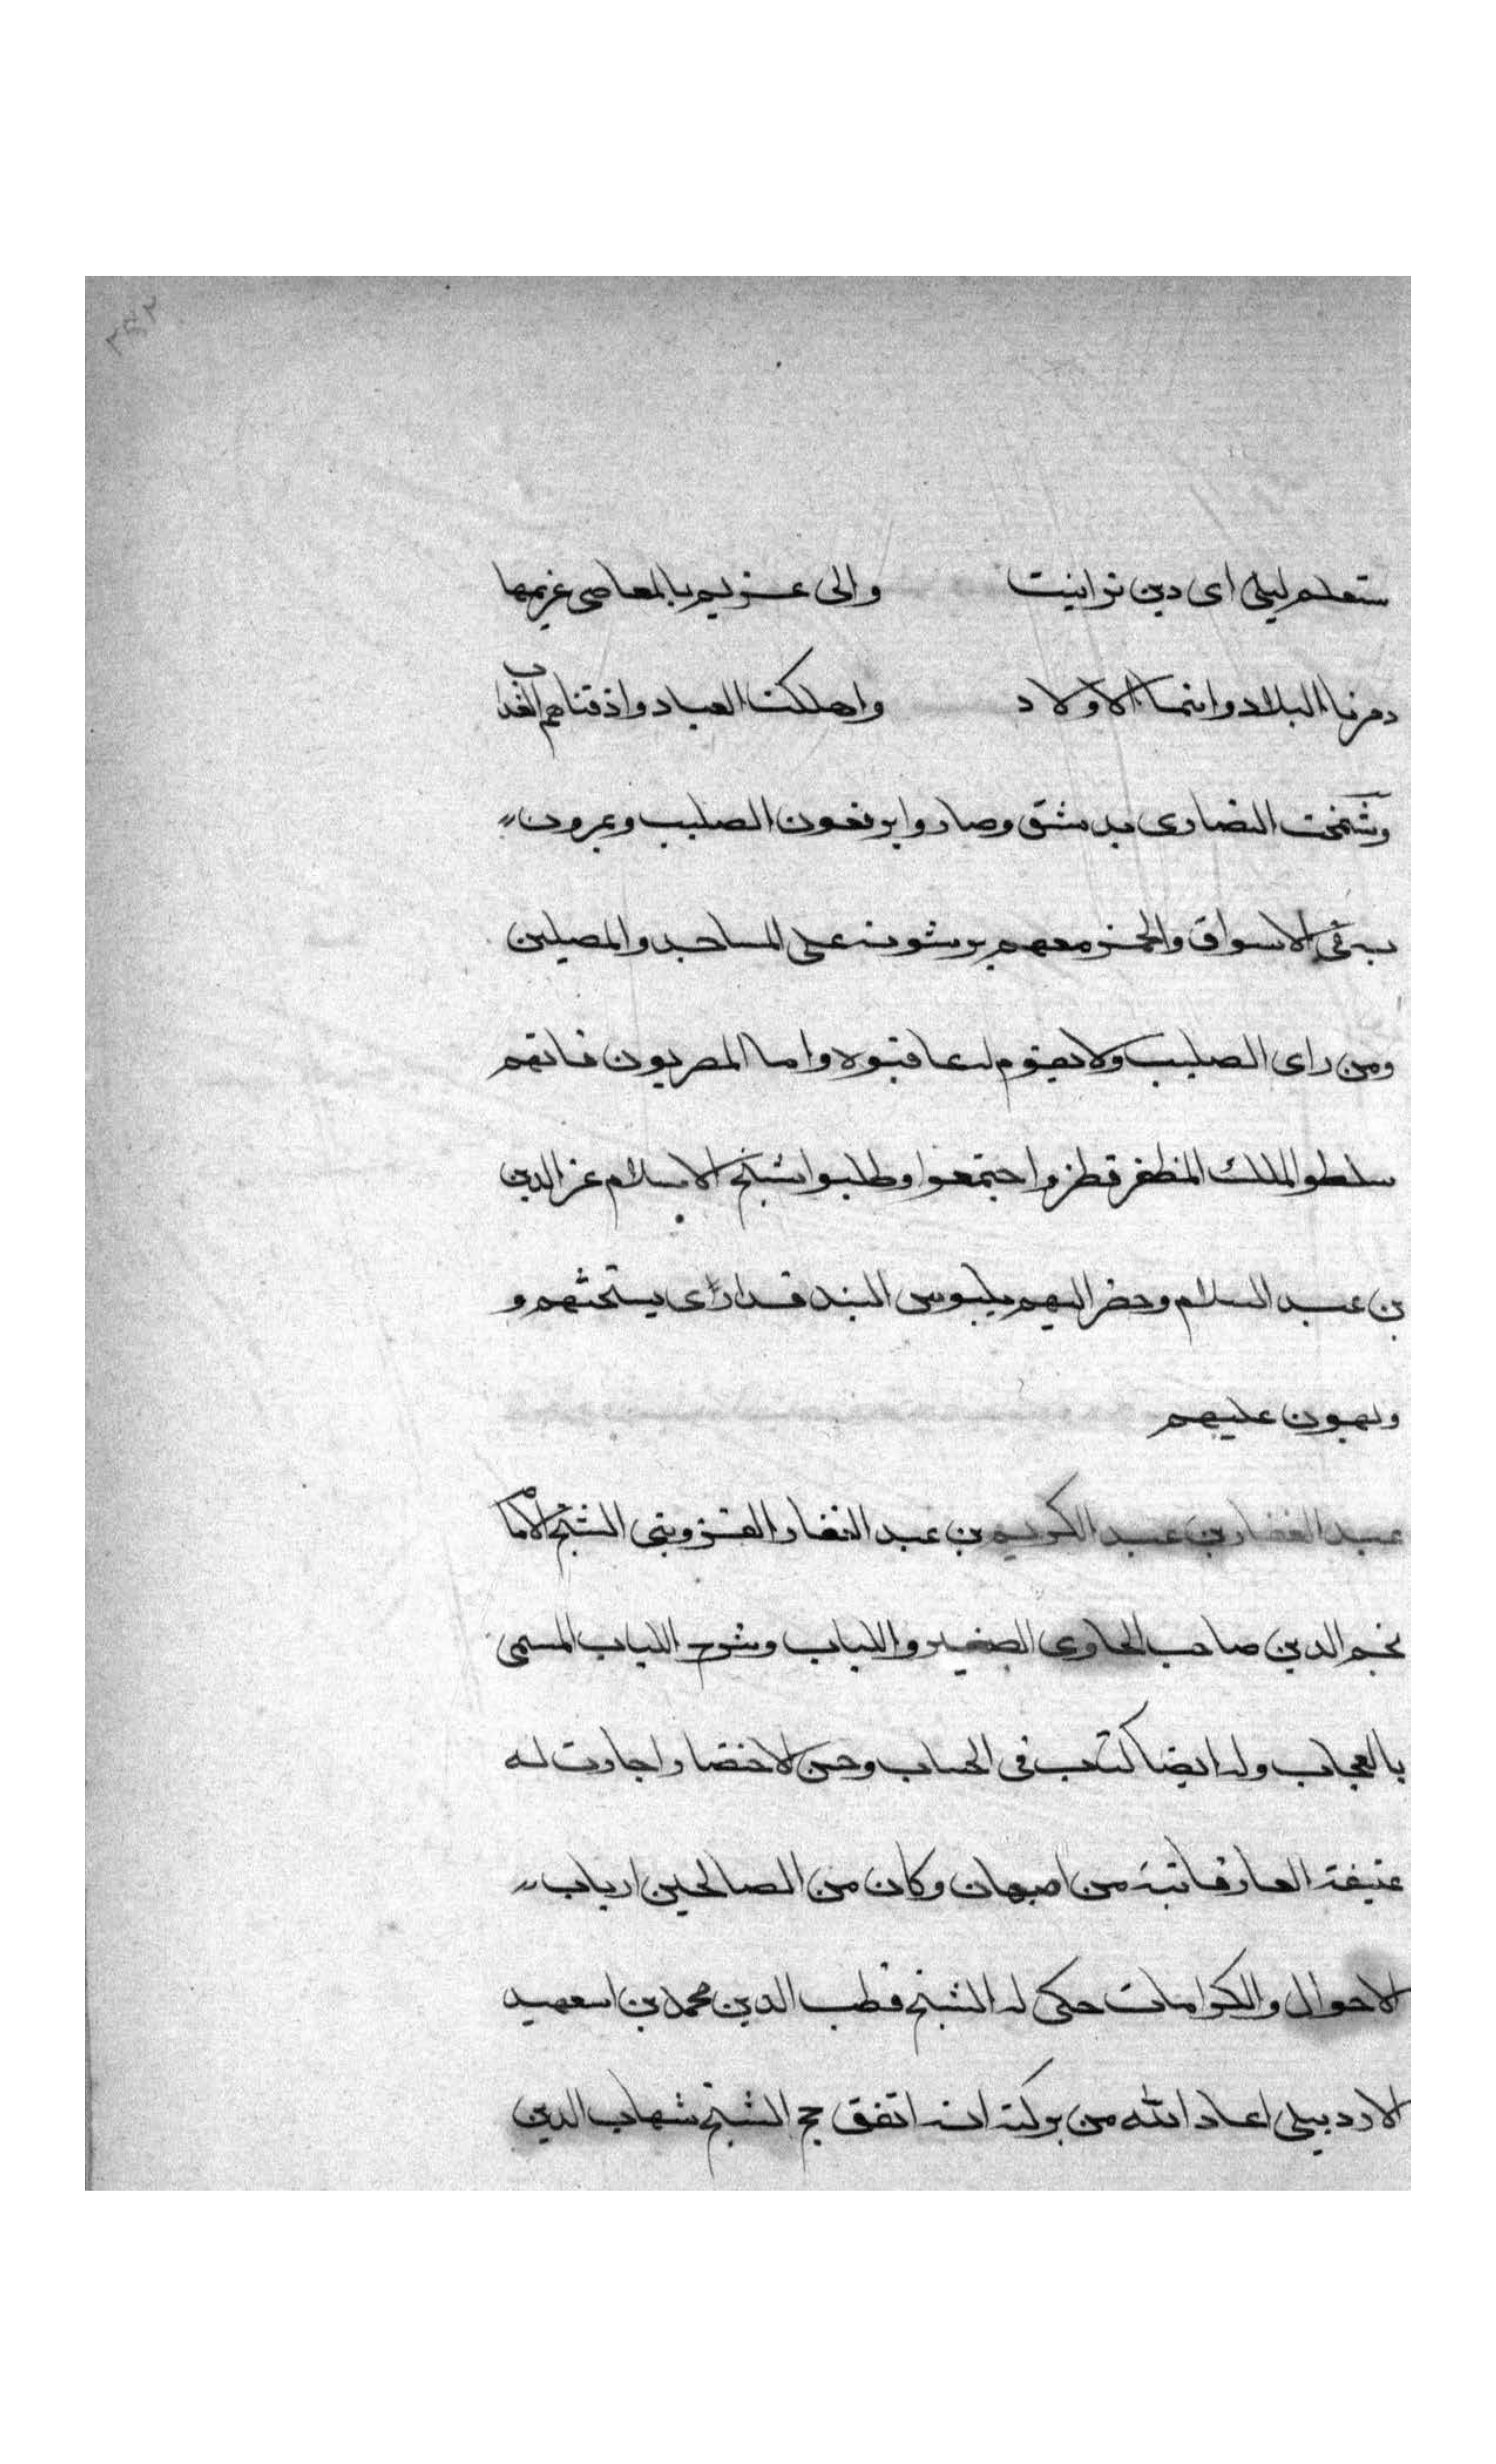 ستعلم ليلى اى دين تداينت والى غريم بالمعاصى غريمها
دمرنا البلاد وايتمنا الاولاد واهلكنا العباد واذقناهم العذاب
وشمخت النصارى بدمشق وصاروا يرفعون الصليب ويمرون
به فى الاسواق والخمر معهم يرشونه على المساجد والمصلين
ومن راى الصليب ولا يقوم له عاقبوه واما المصريون فانهم
سلطو الملك المظفر قطز واجتمعوا وطلبوا شيخ الاسلام عز الدين
بن عبد السلام وحضر اليهم بيبرس البندقدارى يستحثهم و
ويهون عليهم
عبد الغفار بن عبد الكريم بن عبد الغفار القزوينى الشيخ الامام
نجم الدين صاحب الحاوى الصغير واللباب وشرح اللباب المسمى
بالعجاب وله ايضا كتاب فى الحساب وحسن الاختصار اجازت له
عفيفة الفارفانية من اصبهان وكان من الصالحين ارباب
الاحوال والكرامات حكى له الشيخ قطب الدين محمد بن اسعهيد
الاردبيلى اعاد الله من بركته انه اتفق حج الشيخ شهاب الدين